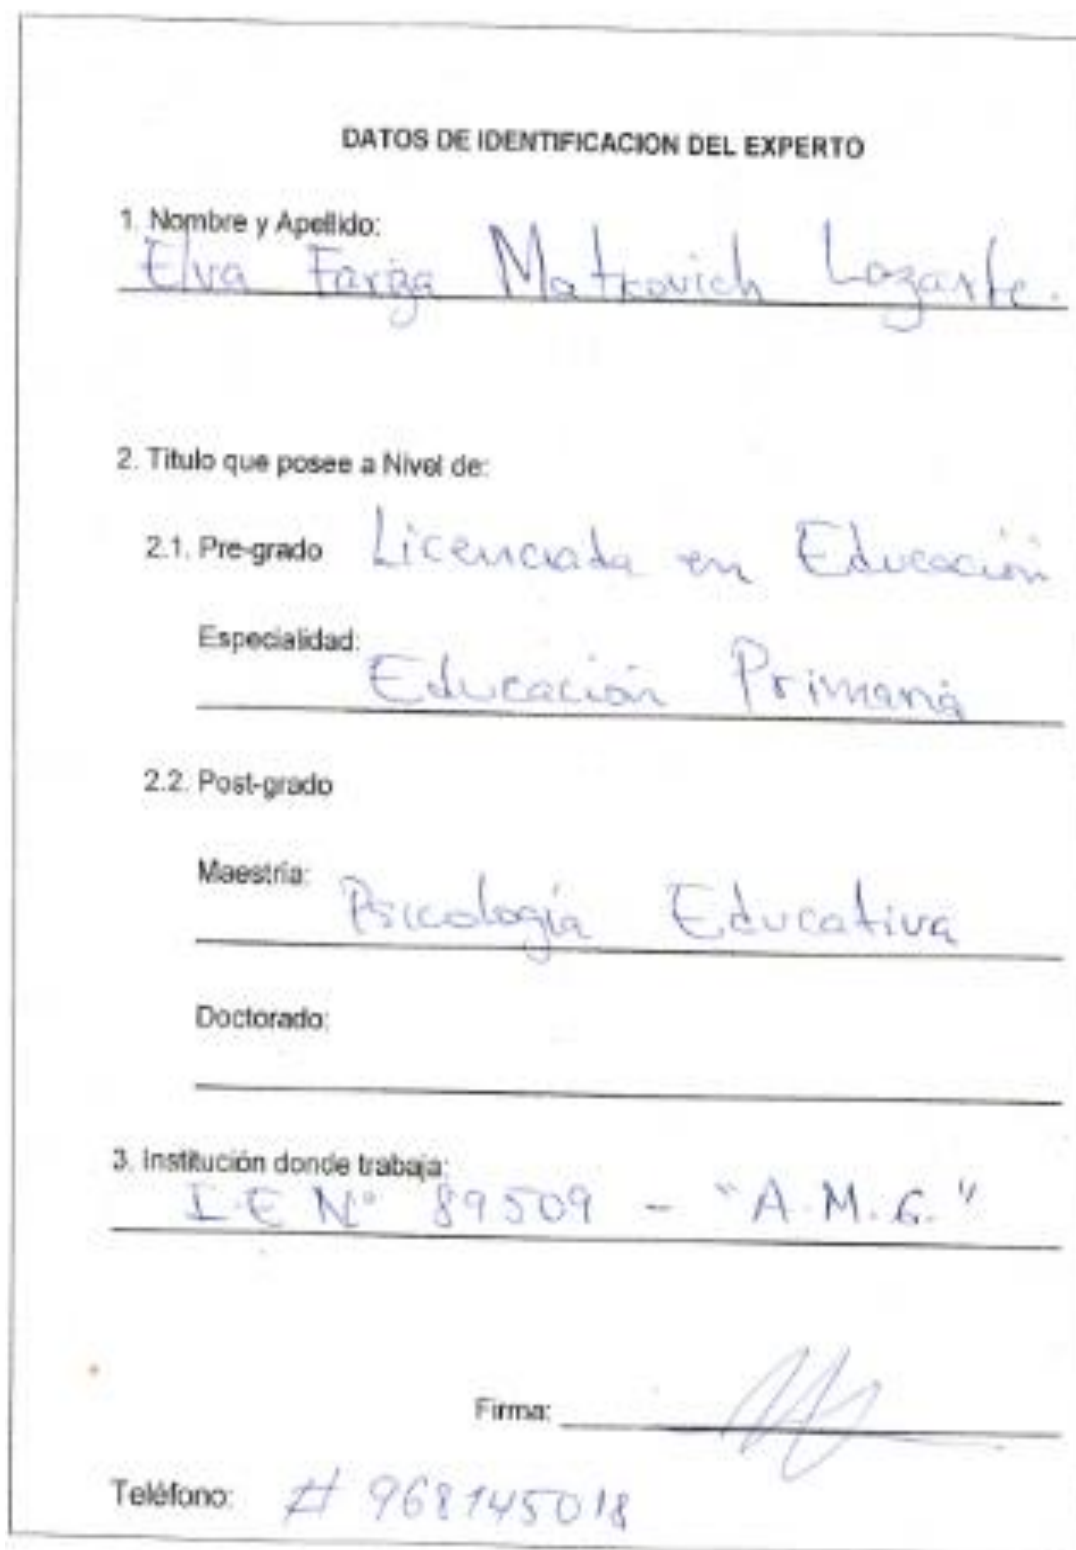 DATOS DE IDENTIFICACION DEL EXPERTO
1. Nombre y Apellido:
Elva Fariza Matkovich Lozarte.
2. Titulo que posee a Nivel de:
2.1. Pre-grado Licenciada en Educación
Especialidad:
Educación Primaria
2.2. Post-grado
Maestría:
Psicología Educativa
Doctorado:
3. Institución donde trabaja:
I.E N° 89509 - "A.M.G."
Firma:
Teléfono: # 968145018